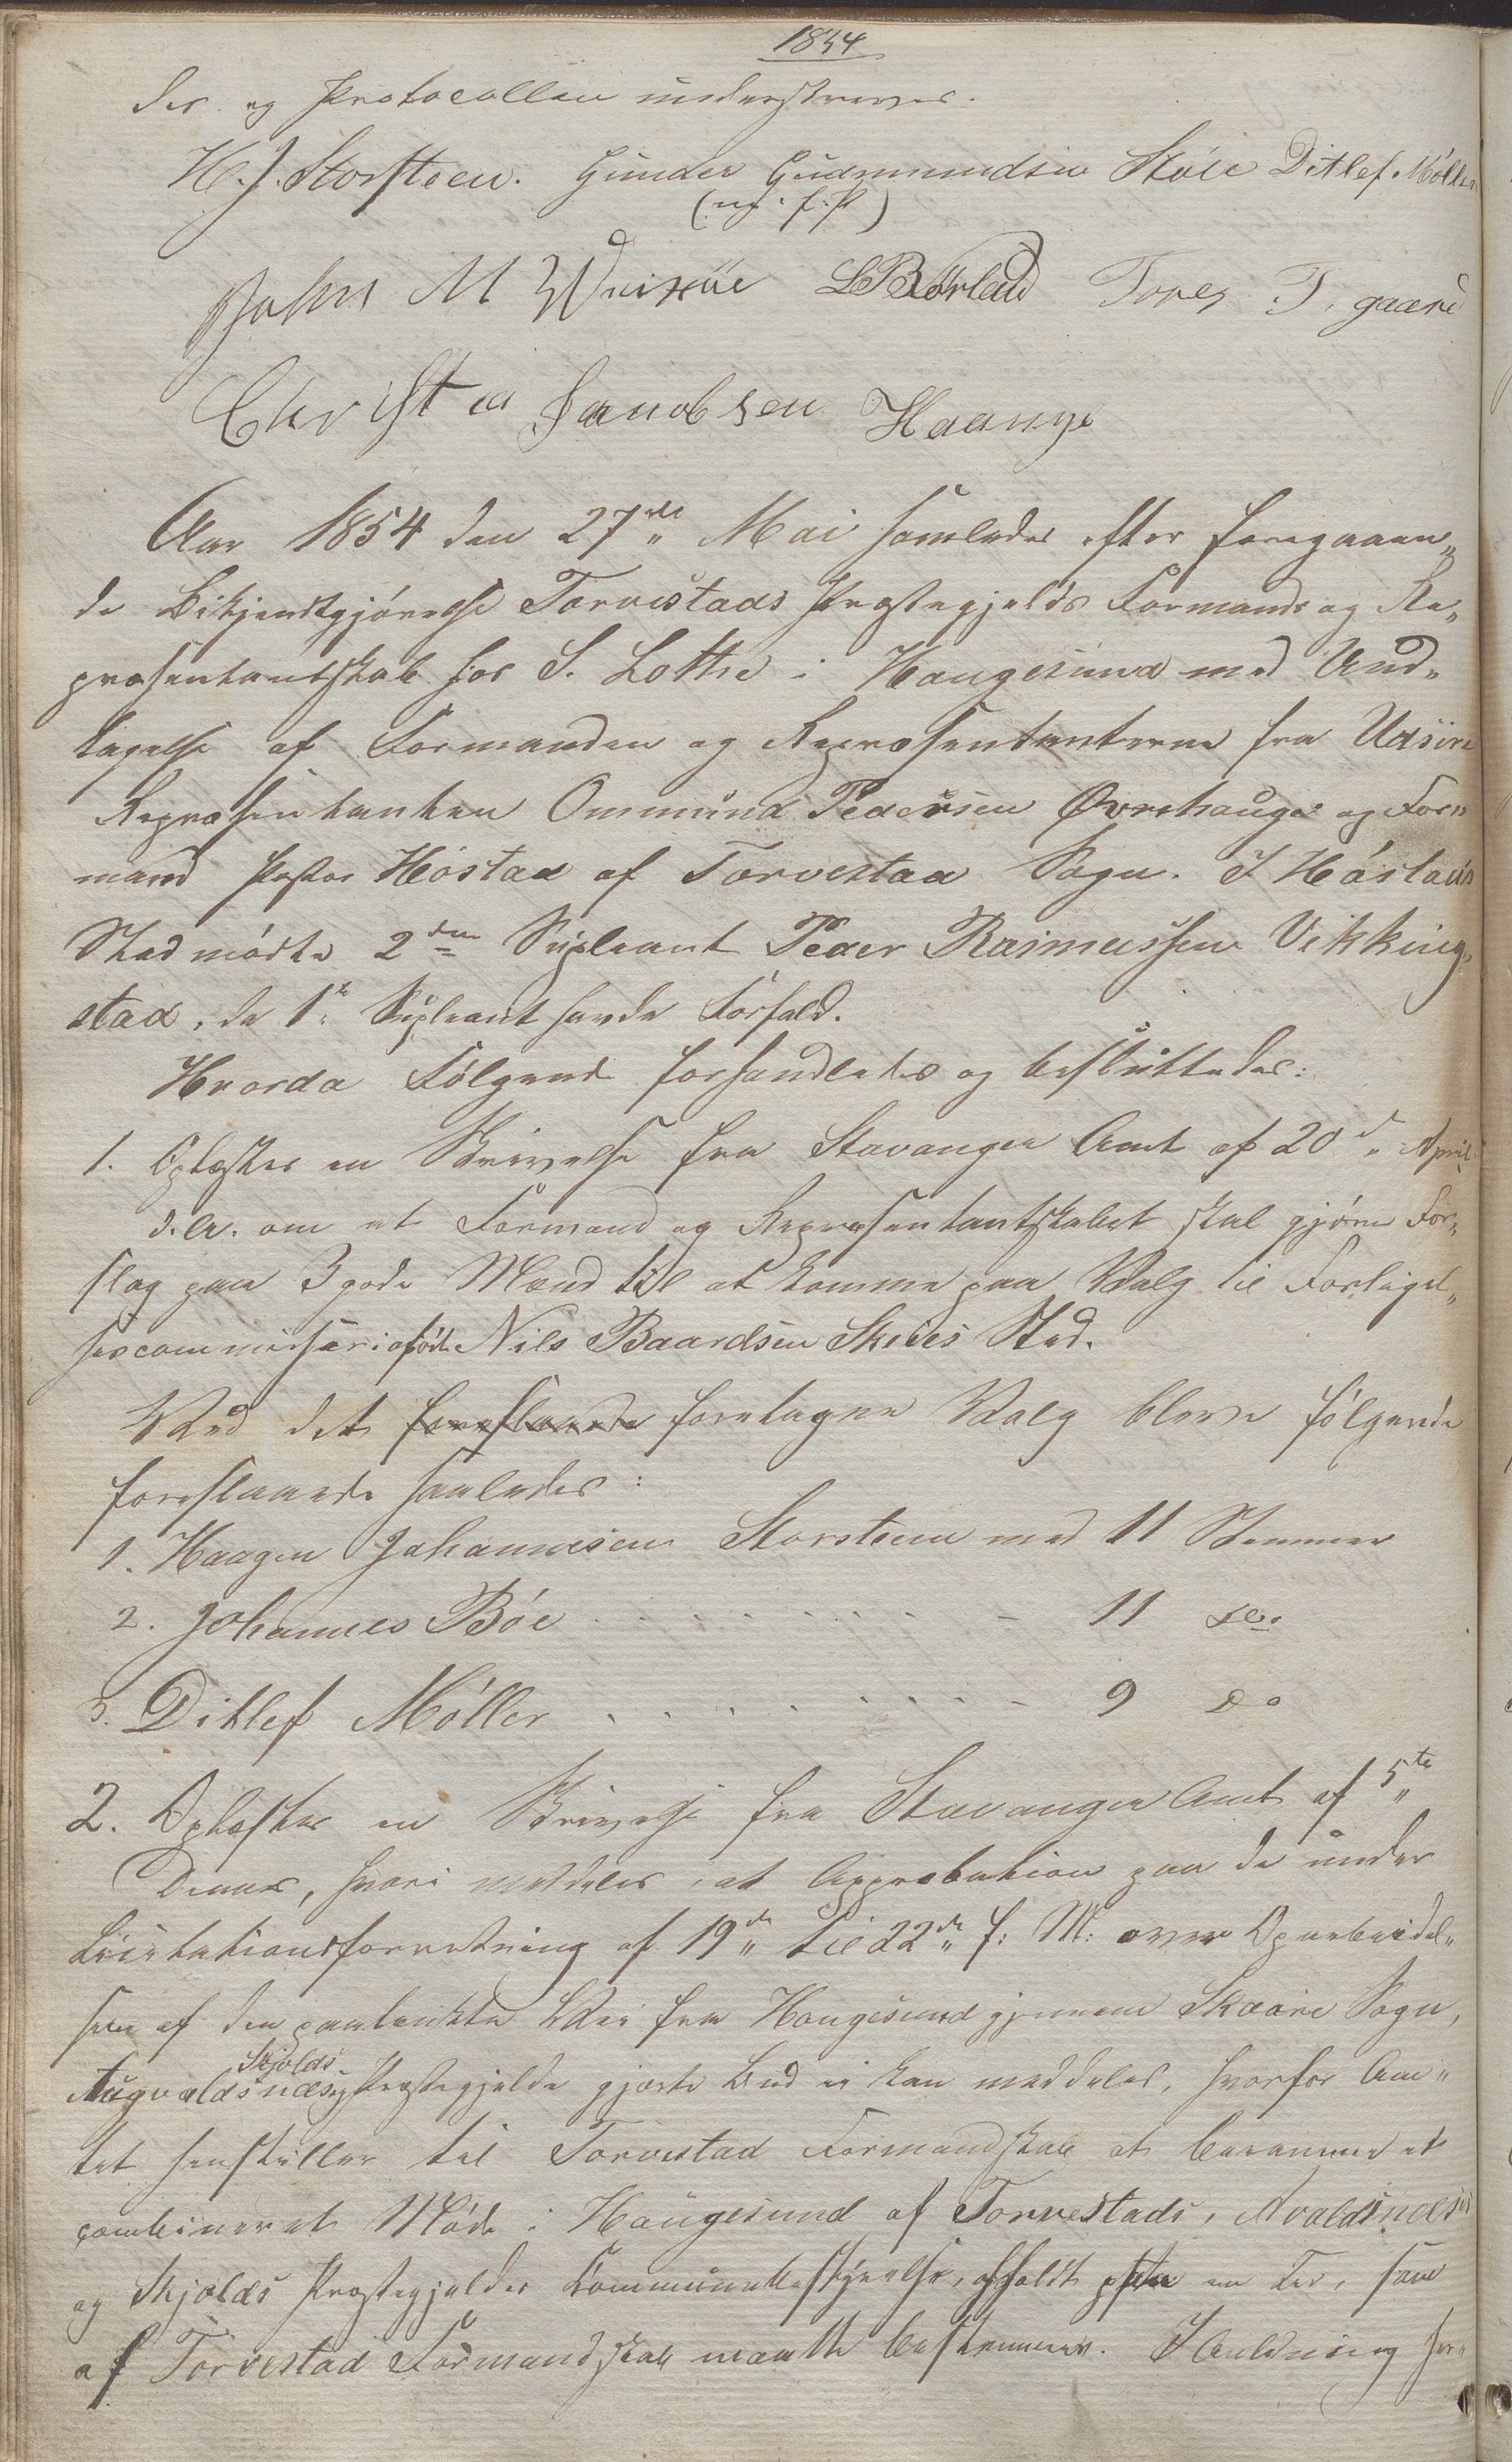 1854
des og Protocollen underskreves.
H. J. Storsteen. Gunder Gudmundsen Støle Ditlef Møller
(m. f. P)
John M L B Tores T. gaard
Christen Jacobsen Haavge
Aar 1854 den 27de Mai samledes efter foregaaen„
de Bekjendtgjørelse Torvestads Præstegjelds Formands og Re„
præsentantskab hos S. Lothe i Haugesund med Und„
tagelse af Formanden og Repræsentanterne fra Udsire
Repræsentanten Ommund Pedersen Øvrehauge og For„
mand Peder Høstad af Torvestad Sogn. I Høstads
Sted mødte 2den Supleant Peder Rasmussen Vikking„
stad, da 1ste Supleant havde Forfald.
Hvorda Følgende forhandledes og besluttedes:
1. Oplæstes en Skrivelse fra Stavanger Amt af 20de April
d. A. om at Formand og Repræsentantskabet skal gjøre For„
slag paa 3 gode Mænd til at komme paa Valg til Forligel„
sescommissair i afdøde Nils Baardsen Skeies Sted.
Ved det foreslaaede foretagne Valg bleve følgende
foreslaaede saaledes:
1. Haagen Johannesen Storsteen med 11 Stemmer
2. Johannes Bøe . . . . . . . . . - 11 do.
3. Ditlef Møller . . . . . . . . - 9 do
2. Oplæstes en Skrivelse fra Stavanger Amt af 5te
Dennes, hvori meddeles, at Approbation paa de under
Licitationsforretning af 19de til 22de f: M: over Oparbeidel„
sen af den paatænkte Vei fra Haugesund gjennem Skaare Sogn,
Skjolds
Augvaldsnæs og Præstegjelde gjorte Bud ei kan meddeles, hvorfor Am„
tet henstiller til Torvestad Formandskab at beramme et
combineret Møde i Haugesund af Torvestads, Avaldsnæs's
og Skjolds Præstegjelders Kommunebestyrelse, afholdt paa en Tid, som
af Torvestad Formandskab maatte bestemmes. I Anledning her„